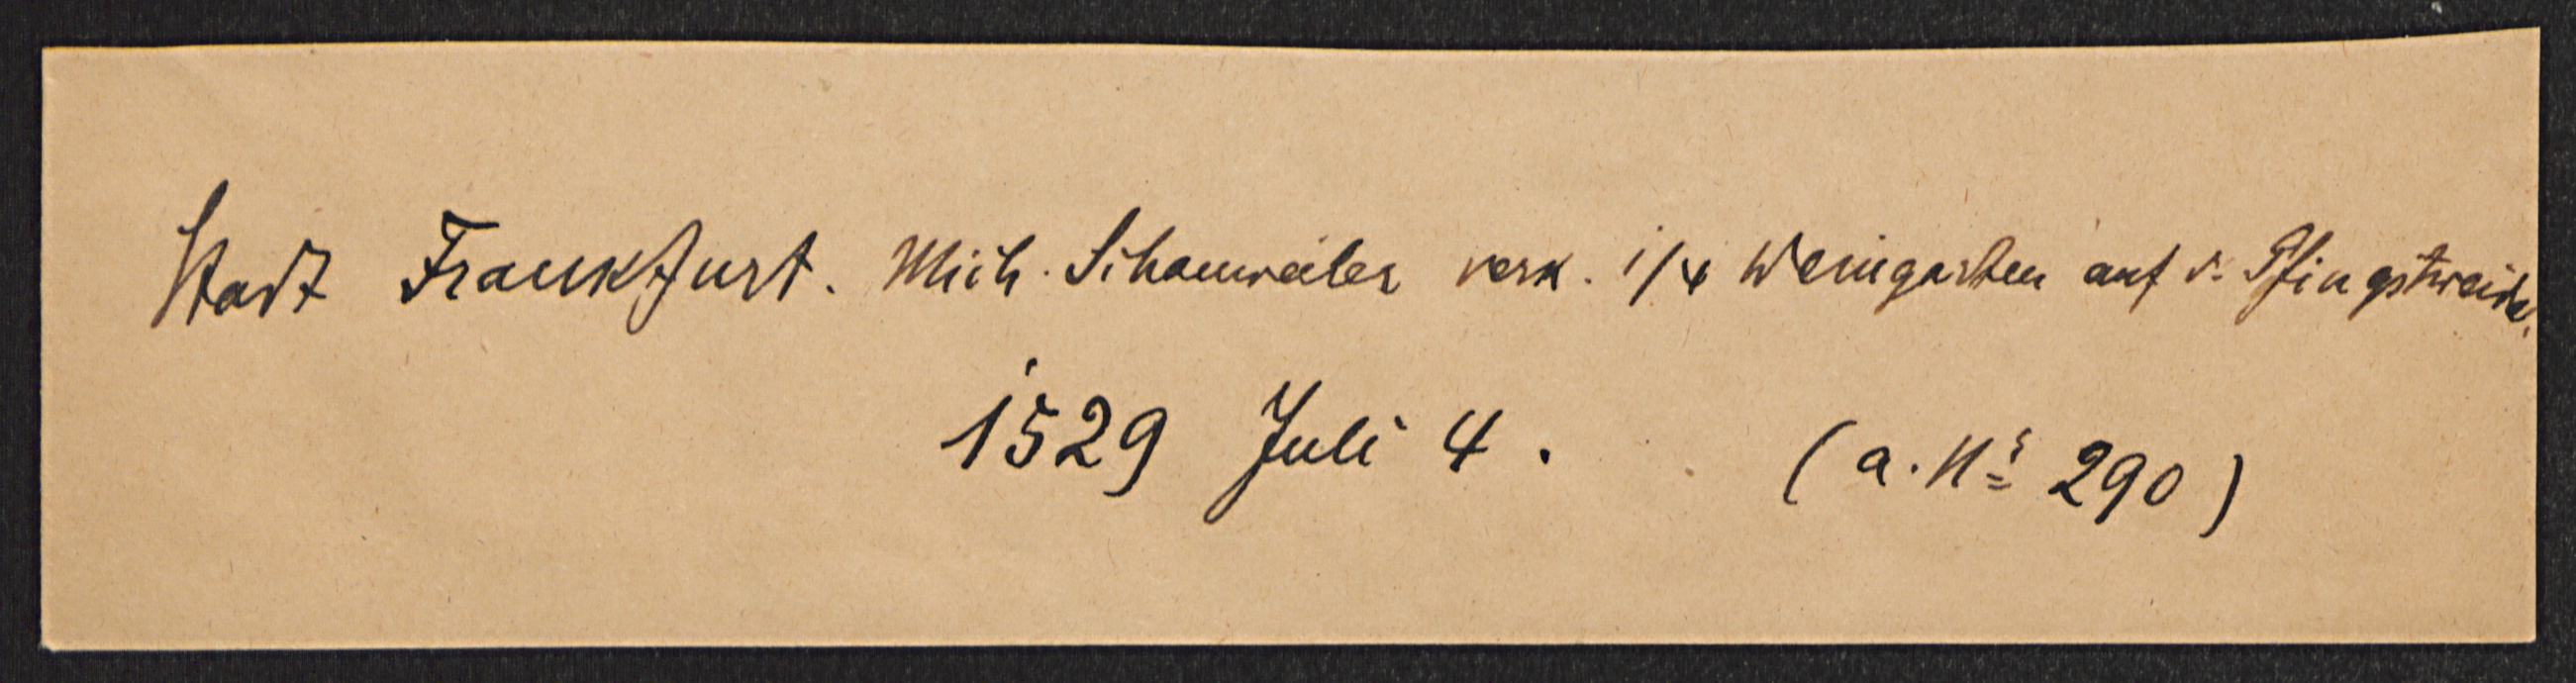 Stadt Frankfurt. Mich. Schauweiler verk. 1/4 Weingarten auf d. Pfingstweide.
1529 Juli 4. (a. Nr 290)